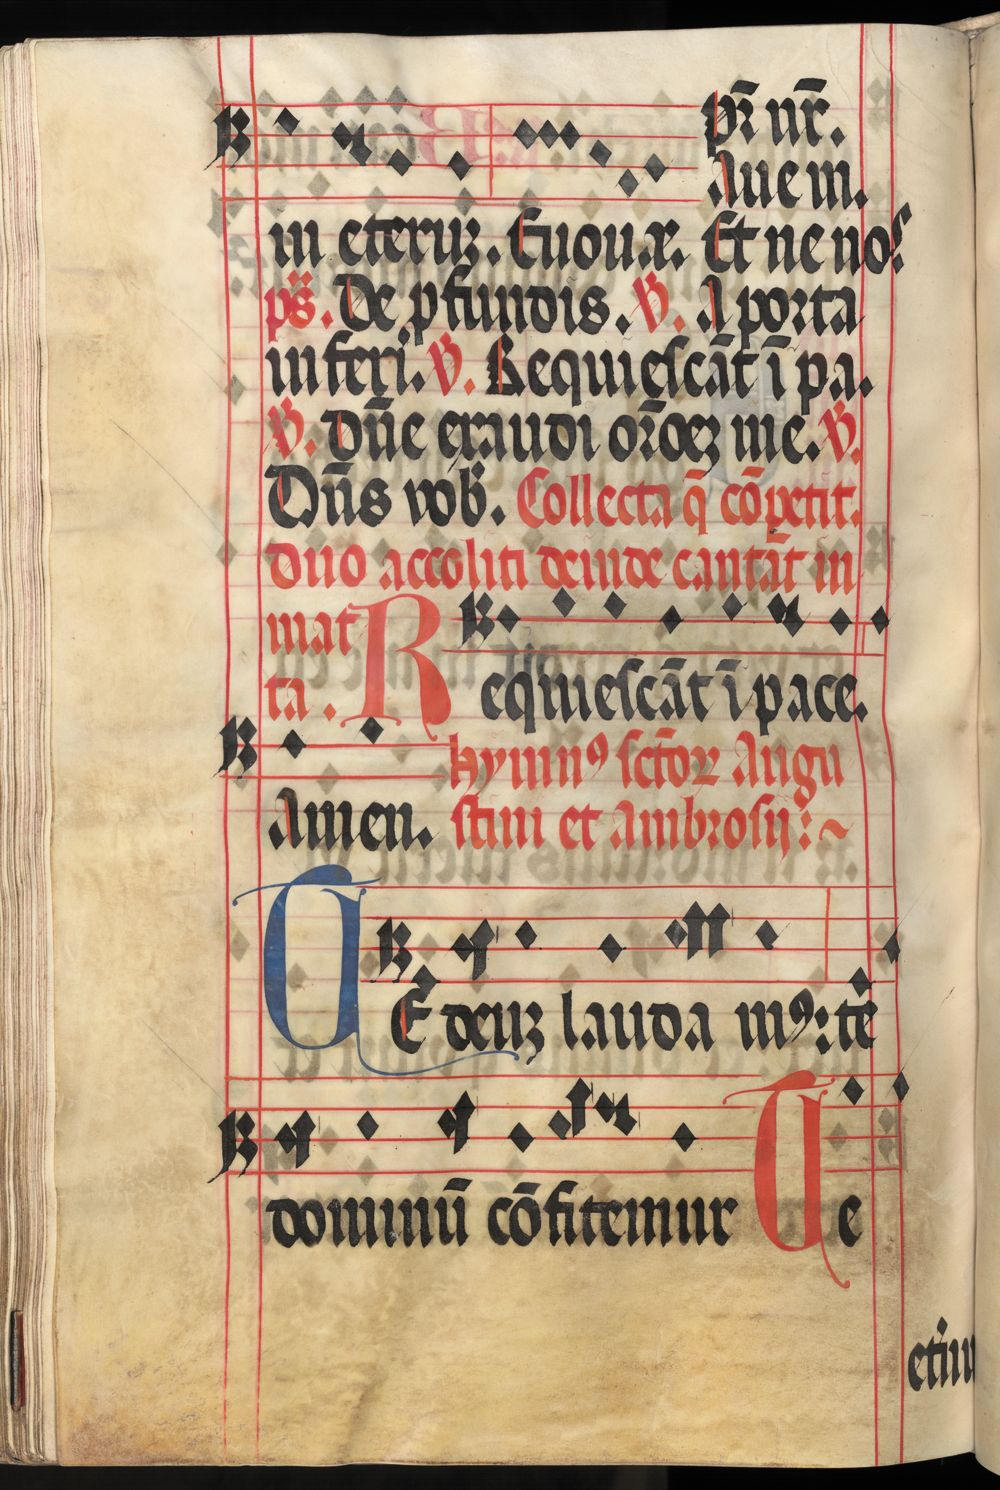 pr̄ nr̄.
Aue m.
in eternꝫ. Euouae. Et ne nos
ps̄. De pfundis. ℣. A porta
inferi. ℣. Requiescāt ī pa.
℣. Dn̄e exaudi or̄oeꝫ me. ℣.
Dn̄s vob̄. Collecta q̄ cōpetit.
duo accoliti deinde cantāt in
mat
ta. Requiescāt ī pace.
hymnꝰ sctōꝝ Augu
Amen. stini et Ambrosij:~
TE deuꝫ laudamꝰ: te
dominū cōfitemur Te